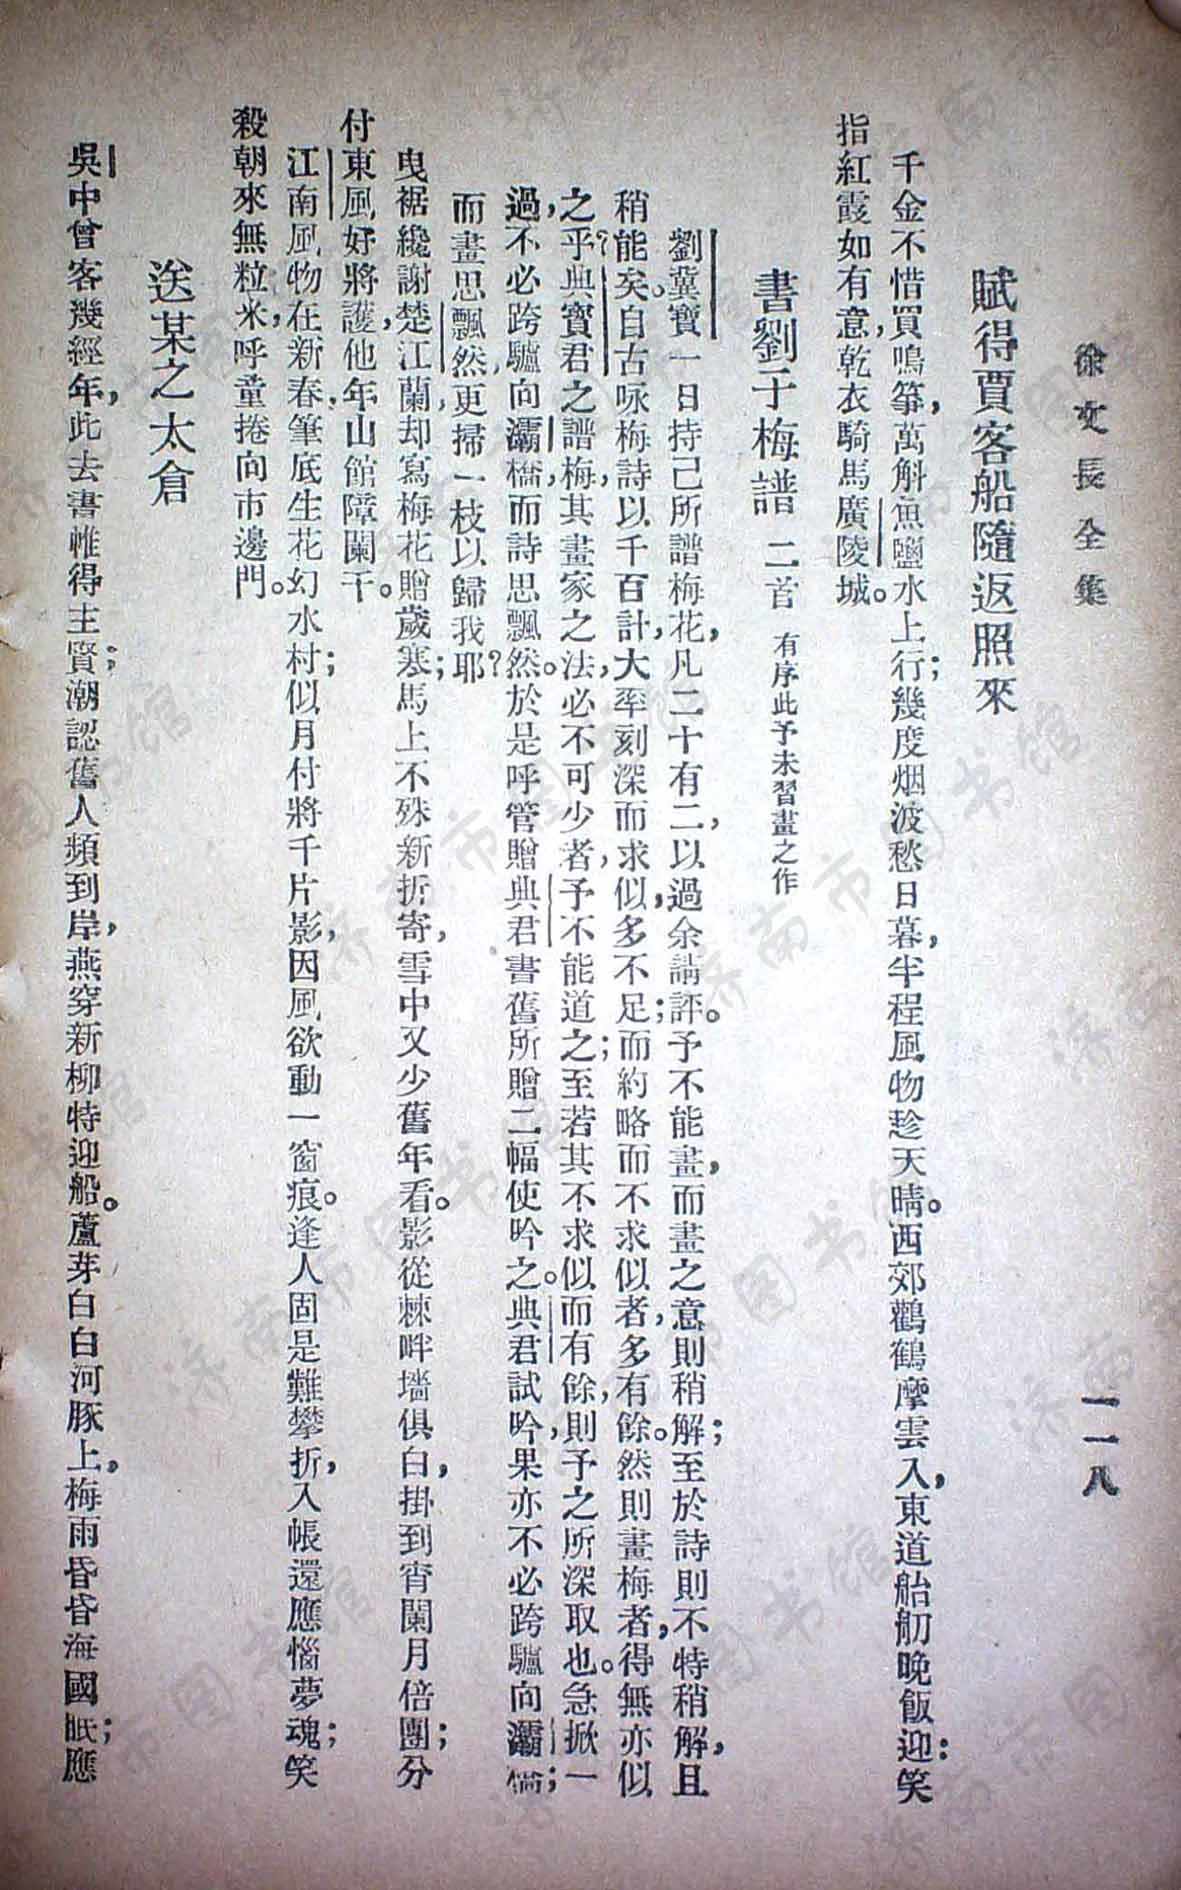 徐文長全集
一一八
賦得賈客船隨返照來
千金不惜買鳴箏，萬斛魚鹽水上行；幾度烟波愁日暮，半程風物趁天晴。西郊鸛鶴摩雲入，東道船舠晚飯迎：笑
指紅霞如有意，乾衣騎馬廣陵城。
書劉子梅譜 二首 有序此予未習畫之作
劉冀寶一日持己所譜梅花，凡二十有二，以過余請評。予不能畫，而畫之意則稍解；至於詩則不特稍解，且
稍能矣。自古咏梅詩以千百計，大率刻深而求似，多不足；而約略而不求似者，多有餘。然則畫梅者，得無亦似
之乎？典寶君之譜梅，其畫家之法，必不可少者，予不能道之；至若其不求似而有餘，則予之所深取也。急掀一
過，不必跨驢向灞橋，而詩思飄然。於是呼管贈典君書舊所贈二幅使吟之。典君試吟，果亦不必跨驢向灞橋；
而畫思飄然，更掃一枝以歸我耶？
曳裾纔謝楚江蘭，却寫梅花贈歲寒；馬上不殊新折寄，雪中又少舊年看。影從棘畔墻俱白，掛到宵闌月倍團；分
付東風好將護，他年山館障闌干。
江南風物在新春，筆底生花幻水村；似月付將千片影，因風欲動一窗痕。逢人固是難攀折，入帳還應惱夢魂；笑
殺朝來無粒米，呼童捲向市邊門。
送某之太倉
吳中曾客幾經年，此去書帷得主賢；潮認舊人頻到岸，燕穿新柳特迎船。蘆芽白白河豚上，梅雨昏昏海國眠；應